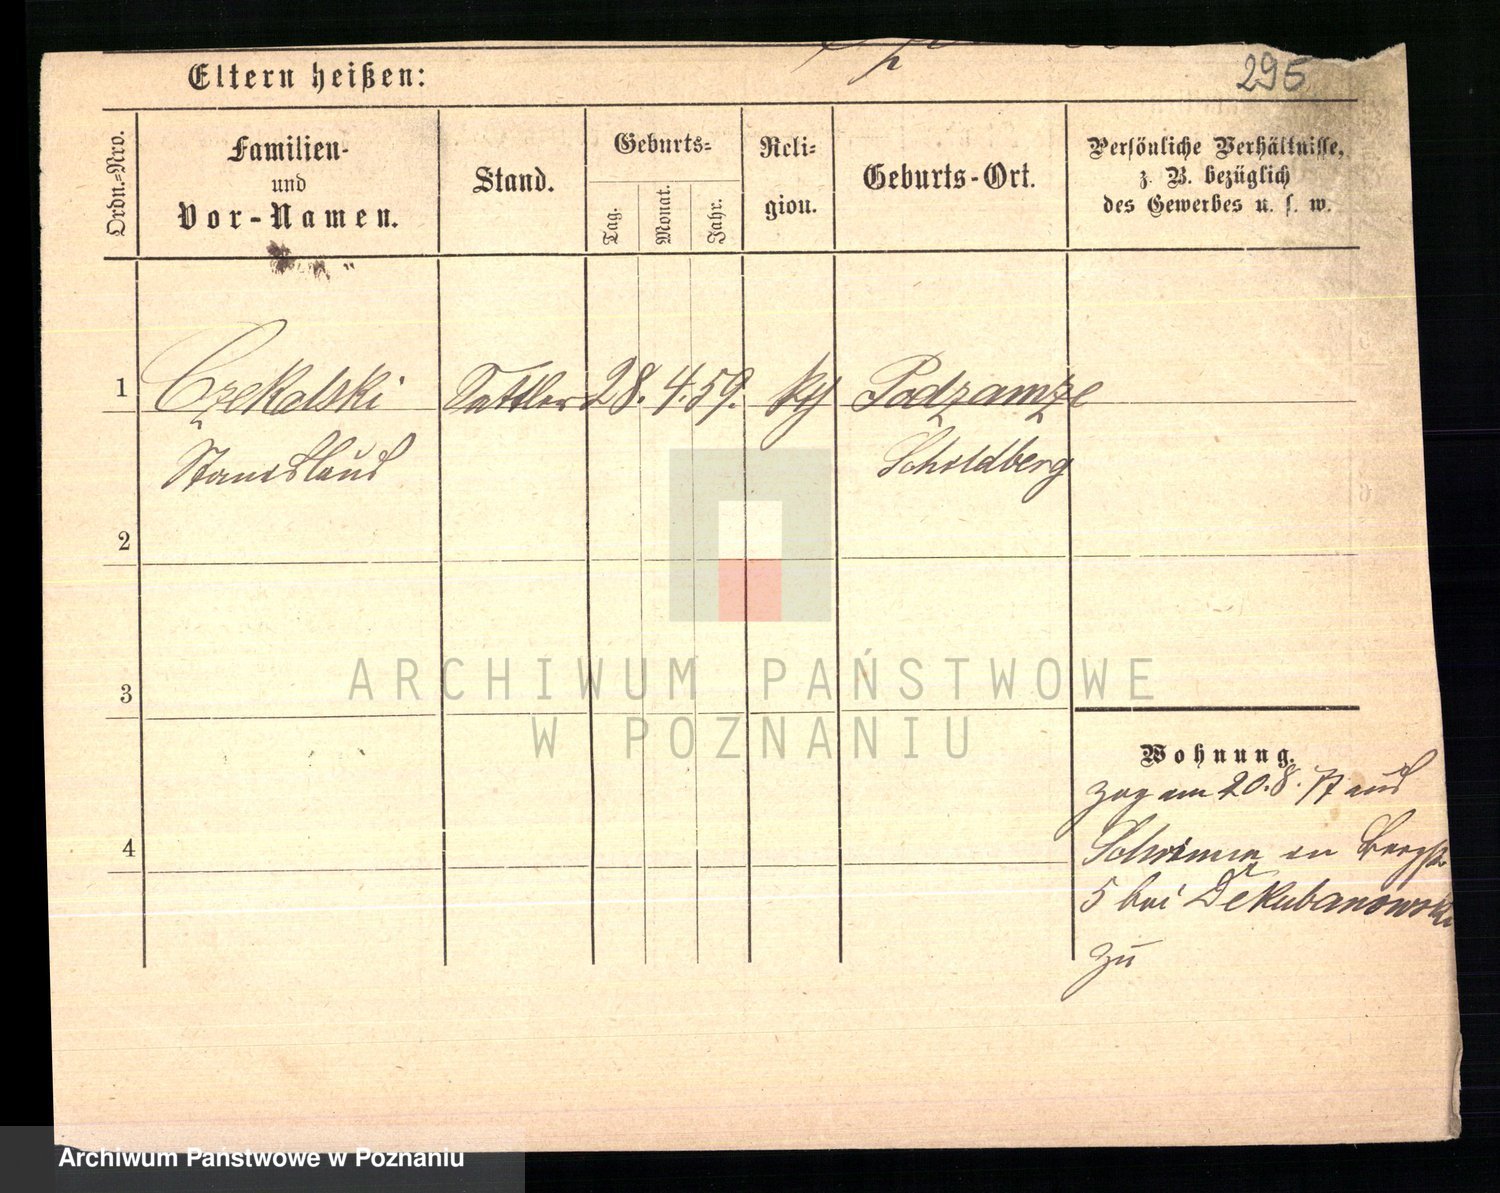 295
Eltern heißen:
Ordn.-Nro.
Familien-
und
Vor-Namen.
Stand.
Geburts-
Tag.
Monat.
Jahr.
Reli-
gion.
Geburts-Ort.
Persönliche Verhältnisse,
z. B. bezüglich
des Gewerbes u. s. w.
1 Czekalski Sattler 28. 4. 59. kth Podzamcze
Stanislaus Schildberg
2
3
4
Wohnung.
zog am 20.8. 77 aus
in Bergstr
5 bei
zu
ARCHIWUM PAŃSTWOWE
W POZNANIU
Archiwum Państwowe w Poznaniu